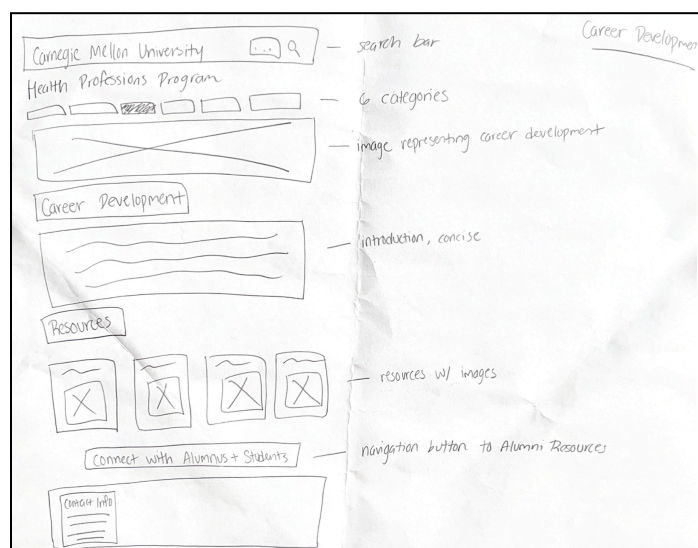 Career Developmen
Carnegie Mellon University ... — search bar
Health Professions Program
6 categories
image representing career development
Career Development
introduction, concise
Resources
resources w/ images
Connect with Alumnus + Students
navigation button to Alumni Resources
Contact Info